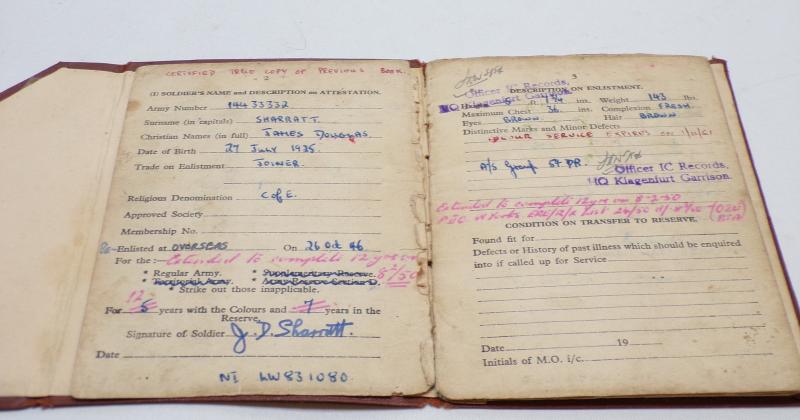 CERTIFIED TRUE COPY OF PREVIOUS BOOK.
2
(I) SOLDIER'S NAME and DESCRIPTION on ATTESTATION.
Army Number 14433332
Surname (in capitals) SHARRATT.
Christian Names (in full) JAMES DOUGLAS.
Date of Birth 27 JULY 1925.
Trade on Enlistment JOINER.
Religious Denomination C of E.
Approved Society
Membership No.
Re-Enlisted at OVERSEAS On 26 Oct 46
For the :— Extended to complete 12 yrs on
* Regular Army. * Supplementary Reserve. 8/2/50
* Territorial Army. * Army Reserve Section D.
* Strike out those inapplicable.
12
For 5 years with the Colours and 7 years in the
Reserve.
Signature of Soldier J. D. Sharratt.
Date
NI LW831080
3
DESCRIPTION ON ENLISTMENT.
Officer IC Records,
HQ Klagenfurt Garrison.
Height 5 ft. ins. Weight 143 lbs.
Maximum Chest 36 ins. Complexion FRESH
Eyes BROWN Hair BROWN
Distinctive Marks and Minor Defects
COLOUR SERVICE EXPIRES on
A/S Group 57 DR.
Officer IC Records,
HQ Klagenfurt Garrison.
Extended to complete 12 yrs on 8-2-50
CONDITION ON TRANSFER TO RESERVE.
Found fit for
Defects or History of past illness which should be enquired
into if called up for Service
Date 19
Initials of M.O. i/c.